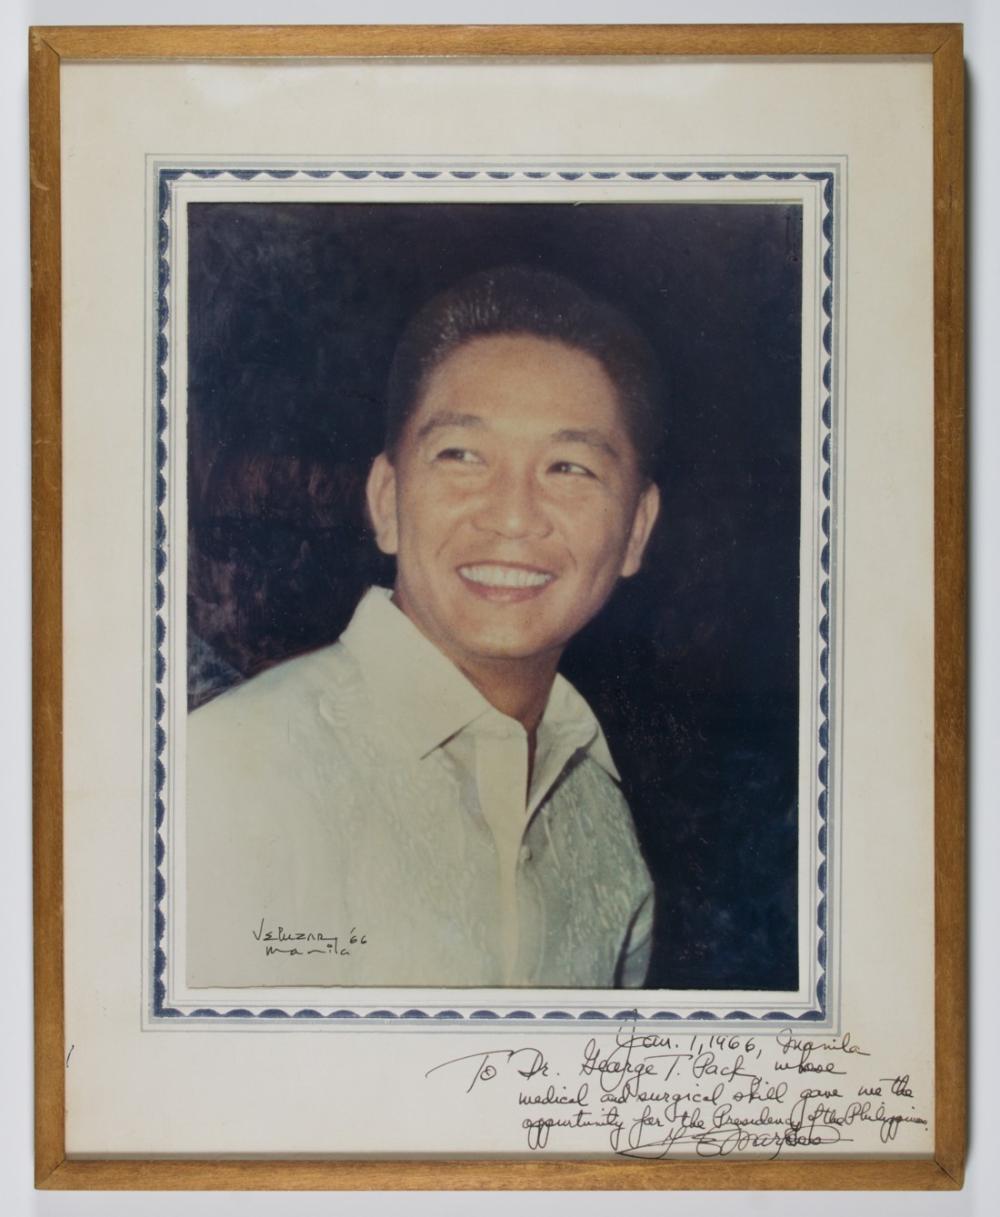 Veluzar '66
Manila
Jan. 1, 1966, Manila
To Dr. George T. Pack, whose
medical and surgical skill gave me the
oppurtunity for the Presidency of the Philippines.
F E Marcos